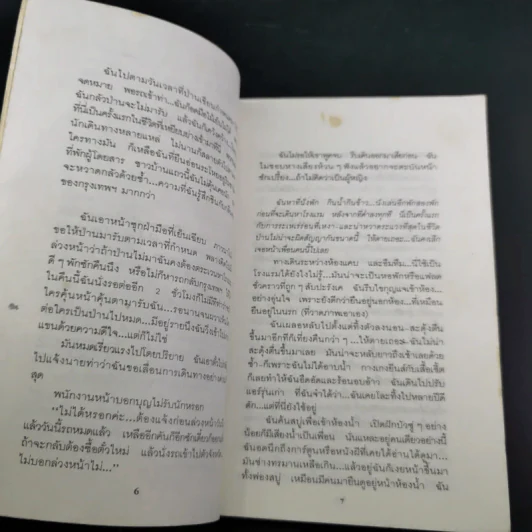 ฉันไปตามวันเวลาที่ป่านเขียน
จดหมาย พอรถเข้าท่า...ฉันก็
ฉันกลัวป่านจะไม่มารับ แล้วฉัน
ที่นี่เป็นครั้งแรกในชีวิตที่เหยียบย่าง
นักเดินทางหลายแหล่ ไม่นาน
ใครทางมัน ก็เหลือฉันที่ยืนอ่อนระโหย
ที่พักผู้โดยสาร ชาวบ้านแถวนี้
จะหวาดกลัวด้วยซ้ำ...ความที่ฉันรู้สึก
ของกรุงเทพฯ มากกว่า
ฉันเอาหน้าซุกฝ่ามือที่เย็นเฉียบ ภาวนา
ขอให้ป่านมารับตามเวลาที่กำหนด
ล่วงหน้าว่าถ้าป่านไม่มาฉันคงต้อง
ดี ๆ พักซักคืนนึง หรือไม่ก็หารถกลับกรุงเทพฯ ให้
ในคืนนี้ฉันนั่งรอต่ออีก 2 ชั่วโมงก็ไม่มีที่ท่า
ใครคุ้นหน้าคุ้นตามารับฉัน...รอนาน
ต่อใครเป็นป่านไปหมด...มีอยู่รายนึงฉันวิ่งเข้า
แขนด้วยความดีใจ...แต่ก็ไม่
มันหมดเรี่ยวแรงไปโดยปริยาย ฉันเอาตั๋ว
ไปแจ้งนายท่าว่าฉันขอเลื่อนการเดินทางอย่าง
สุด
พนักงานหน้าบอกบุญไม่รับนักหรอก
"ไม่ได้หรอกค่ะ...ต้องแจ้งก่อนล่วงหน้า
แล้ววันนี้รถหมดแล้ว เหลืออีกคันก็อีกซักเดี๋ยวก็
ถ้าจะกลับต้องซื้อตั๋วใหม่ แล้วนั่งรถเข้าไปตัวจังหวัด
ไม่บอกล่วงหน้าไม่..."
6
ฉันไม่รอให้เขาพูดจบ รีบเดินออกมาเสียก่อน ฉัน
ไม่ชอบหางเสียงห้วน ๆ ฟังแล้วอยากจะตะบันหน้า
ซักเปรี้ยง...ถ้าไม่ติดว่าเป็นผู้หญิง
ฉันหาที่นั่งพัก กินน้ำกินข้าว...นั่งเล่นอีกพักสองพัก
ก่อนที่จะเดินหาโรงแรม หลังจากที่ค่ำลงทุกที นี่เป็นครั้งแรก
กับการระเหเร่ร่อนที่เหงา และน่าหวาดระแวงที่สุดในชีวิต
ป่านไม่น่าจะผิดสัญญากันขนาดนี้ ให้ตายเถอะ...ฉันคงเลิก
เจอหน้าเพื่อนคนนี้ไปเลย
ทางเดินระหว่างห้องแคบ และซึมทึม...นี่ใช้เป็น
โรงแรมได้ยังไงไม่รู้...มันน่าจะเป็นหอพักหรือแฟลต
ชั่วคราวที่ถูก ๆ สับปะรังเค ฉันรีบไขกุญแจเข้าห้อง...
อย่างอุ่นใจ เพราะยังดีกว่ายืนอยู่นอกห้อง...ที่เหมือน
ยืนอยู่ในนรก (ที่วาดภาพเอาเอง)
ฉันเผลอหลับไปตั้งแต่ทิ้งตัวลงนอน...สะดุ้งตื่น
ขึ้นมาอีกทีก็เที่ยงคืนกว่า ๆ...ให้ตายเถอะ...ฉันไม่น่าจะ
สะดุ้งตื่นขึ้นมาเลย มันน่าจะหลับยาวถึงเช้าเลยด้วย
ซ้ำ...ก็เพราะฉันไม่ได้อาบน้ำ กางเกงยีนส์กับเสื้อเชิ้ต
ก็เลยทำให้ฉันอึดอัดและร้อนอบอ้าว ฉันเดินไปปรับ
แอร์รุ่นเก่า ที่ฉันจำได้ว่า...ฉันเคยโละทิ้งไปหลายปีดี
ดัก...แต่ที่นี่ยังใช้อยู่
ฉันค้นสบู่เพื่อเข้าห้องน้ำ เปิดฝักบัวซู่ ๆ อย่าง
น้อยก็มีเสียงน้ำเป็นเพื่อน นั่นแหละอยู่คนเดียวอย่างนี้
ฉันอดนึกถึงการ์ตูนหรือหนังผีที่เคยได้อ่านได้ดูมา...
มันช่างทรมานเหลือเกิน...แล้วอยู่ฉันก็เงยหน้าขึ้นมา
ทั้งฟองสบู่ เหมือนมีคนมายืนดูอยู่หน้าห้องน้ำ ฉัน
7